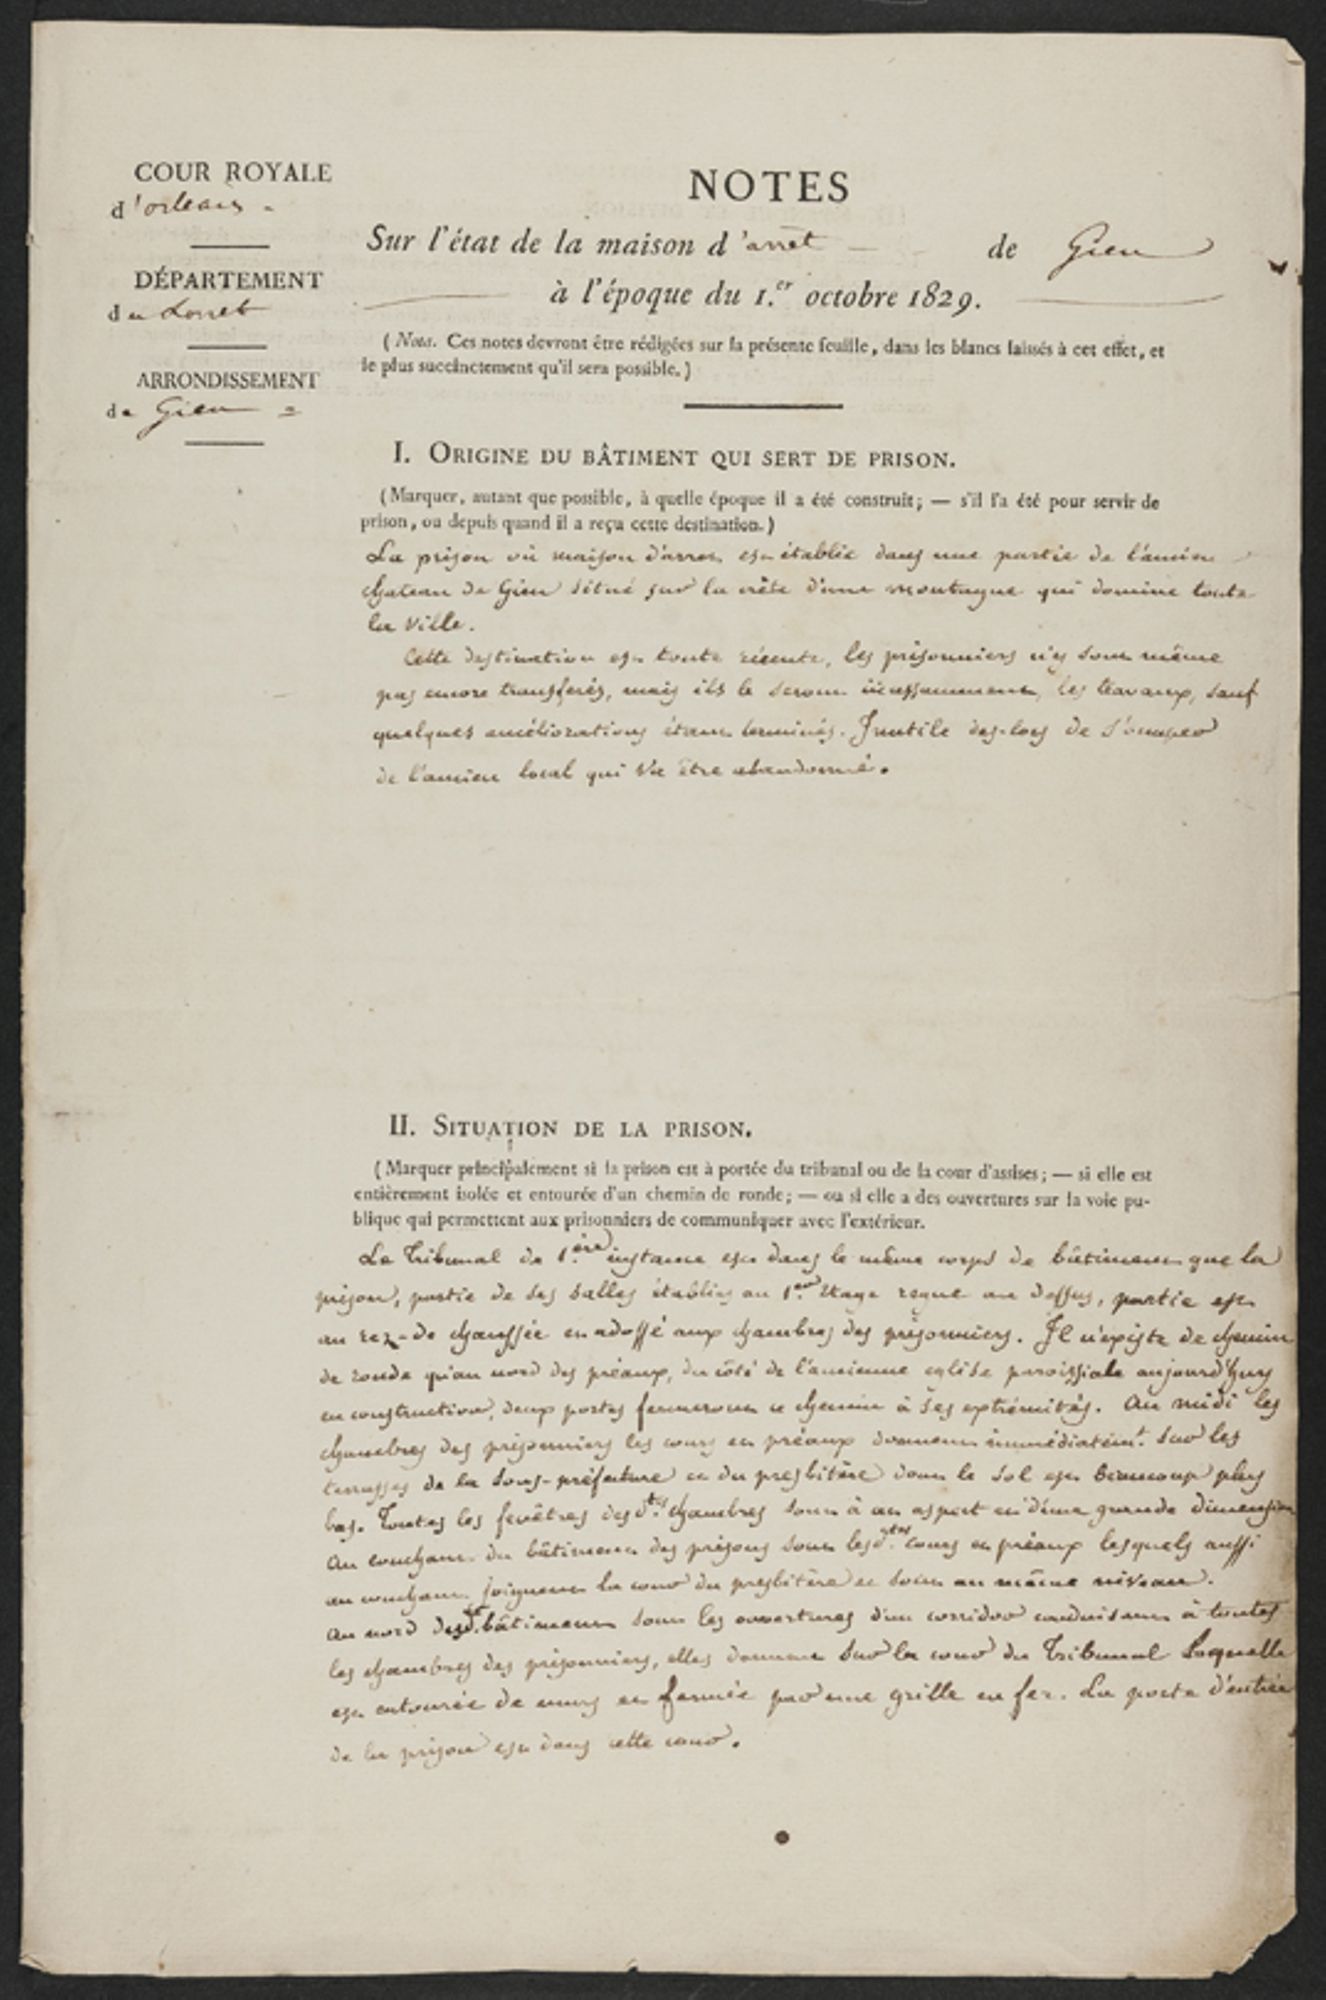 COUR ROYALE
d'orleans
DÉPARTEMENT
du Loiret
ARRONDISSEMENT
de Gien
NOTES
Sur l'état de la maison d'arrêt de Gien
à l'époque du 1.er octobre 1829.
( Nota. Ces notes devront être rédigées sur la présente feuille, dans les blancs laissés à cet effet, et
le plus succinctement qu'il sera possible.)
I. ORIGINE DU BÂTIMENT QUI SERT DE PRISON.
(Marquer, autant que possible, à quelle époque il a été construit; — s'il l'a été pour servir de
prison, ou depuis quand il a reçu cette destination.)
La prison où maison d'arret est établie dans une partie de l'ancien
chateau de Gien situé sur la crête d'une montagne qui domine toute
la Ville.
Cette destination est toute récente, les prisonniers n'y sont même
pas encore transferés, mais ils le seront incessamment, les travaux, sauf
quelques améliorations étant terminés. Inutile des-lors de s'occuper
de l'ancien local qui va être abandonné.
II. SITUATION DE LA PRISON.
(Marquer principalement si la prison est à portée du tribunal ou de la cour d'assises; — si elle est
entièrement isolée et entourée d'un chemin de ronde; — ou si elle a des ouvertures sur la voie pu-
blique qui permettent aux prisonniers de communiquer avec l'extérieur.
Le Tribunal de 1.ère instance est dans le même corps de bâtiment que la
prison, partie de ses salles établies au 1.er étage regne au dessus, partie est
au rez-de chaussée et adossé aux chambres des prisonniers. Il n'existe de chemin
de ronde qu'au nord des préaux, du côté de l'ancienne eglise paroissiale aujourd'huy
en construction, deux portes fermeront ce chemin à ses extrémités. Au midi les
chambres des prisonniers les cours et préaux donnent immédiatem.t sur les
terrasses de la sous-préfecture et du presbitère dont le sol est beaucoup plus
bas. Toutes les fenêtres desd.tes chambres sont à cet aspect et d'une grande dimension
Au couchant du bâtiment des prisons sont lesd.tes cours et préaux lesquels aussi
au couchant joignent la cour du presbitère et sont au même niveau.
Au nord dud.t bâtiment sont les ouvertures d'un corridor conduisant à toutes
les chambres des prisonniers, elles donnent sur la cour du Tribunal Laquelle
est entourée de murs et fermée par une grille en fer. La porte d'entrée
de la prison est dans cette cour.